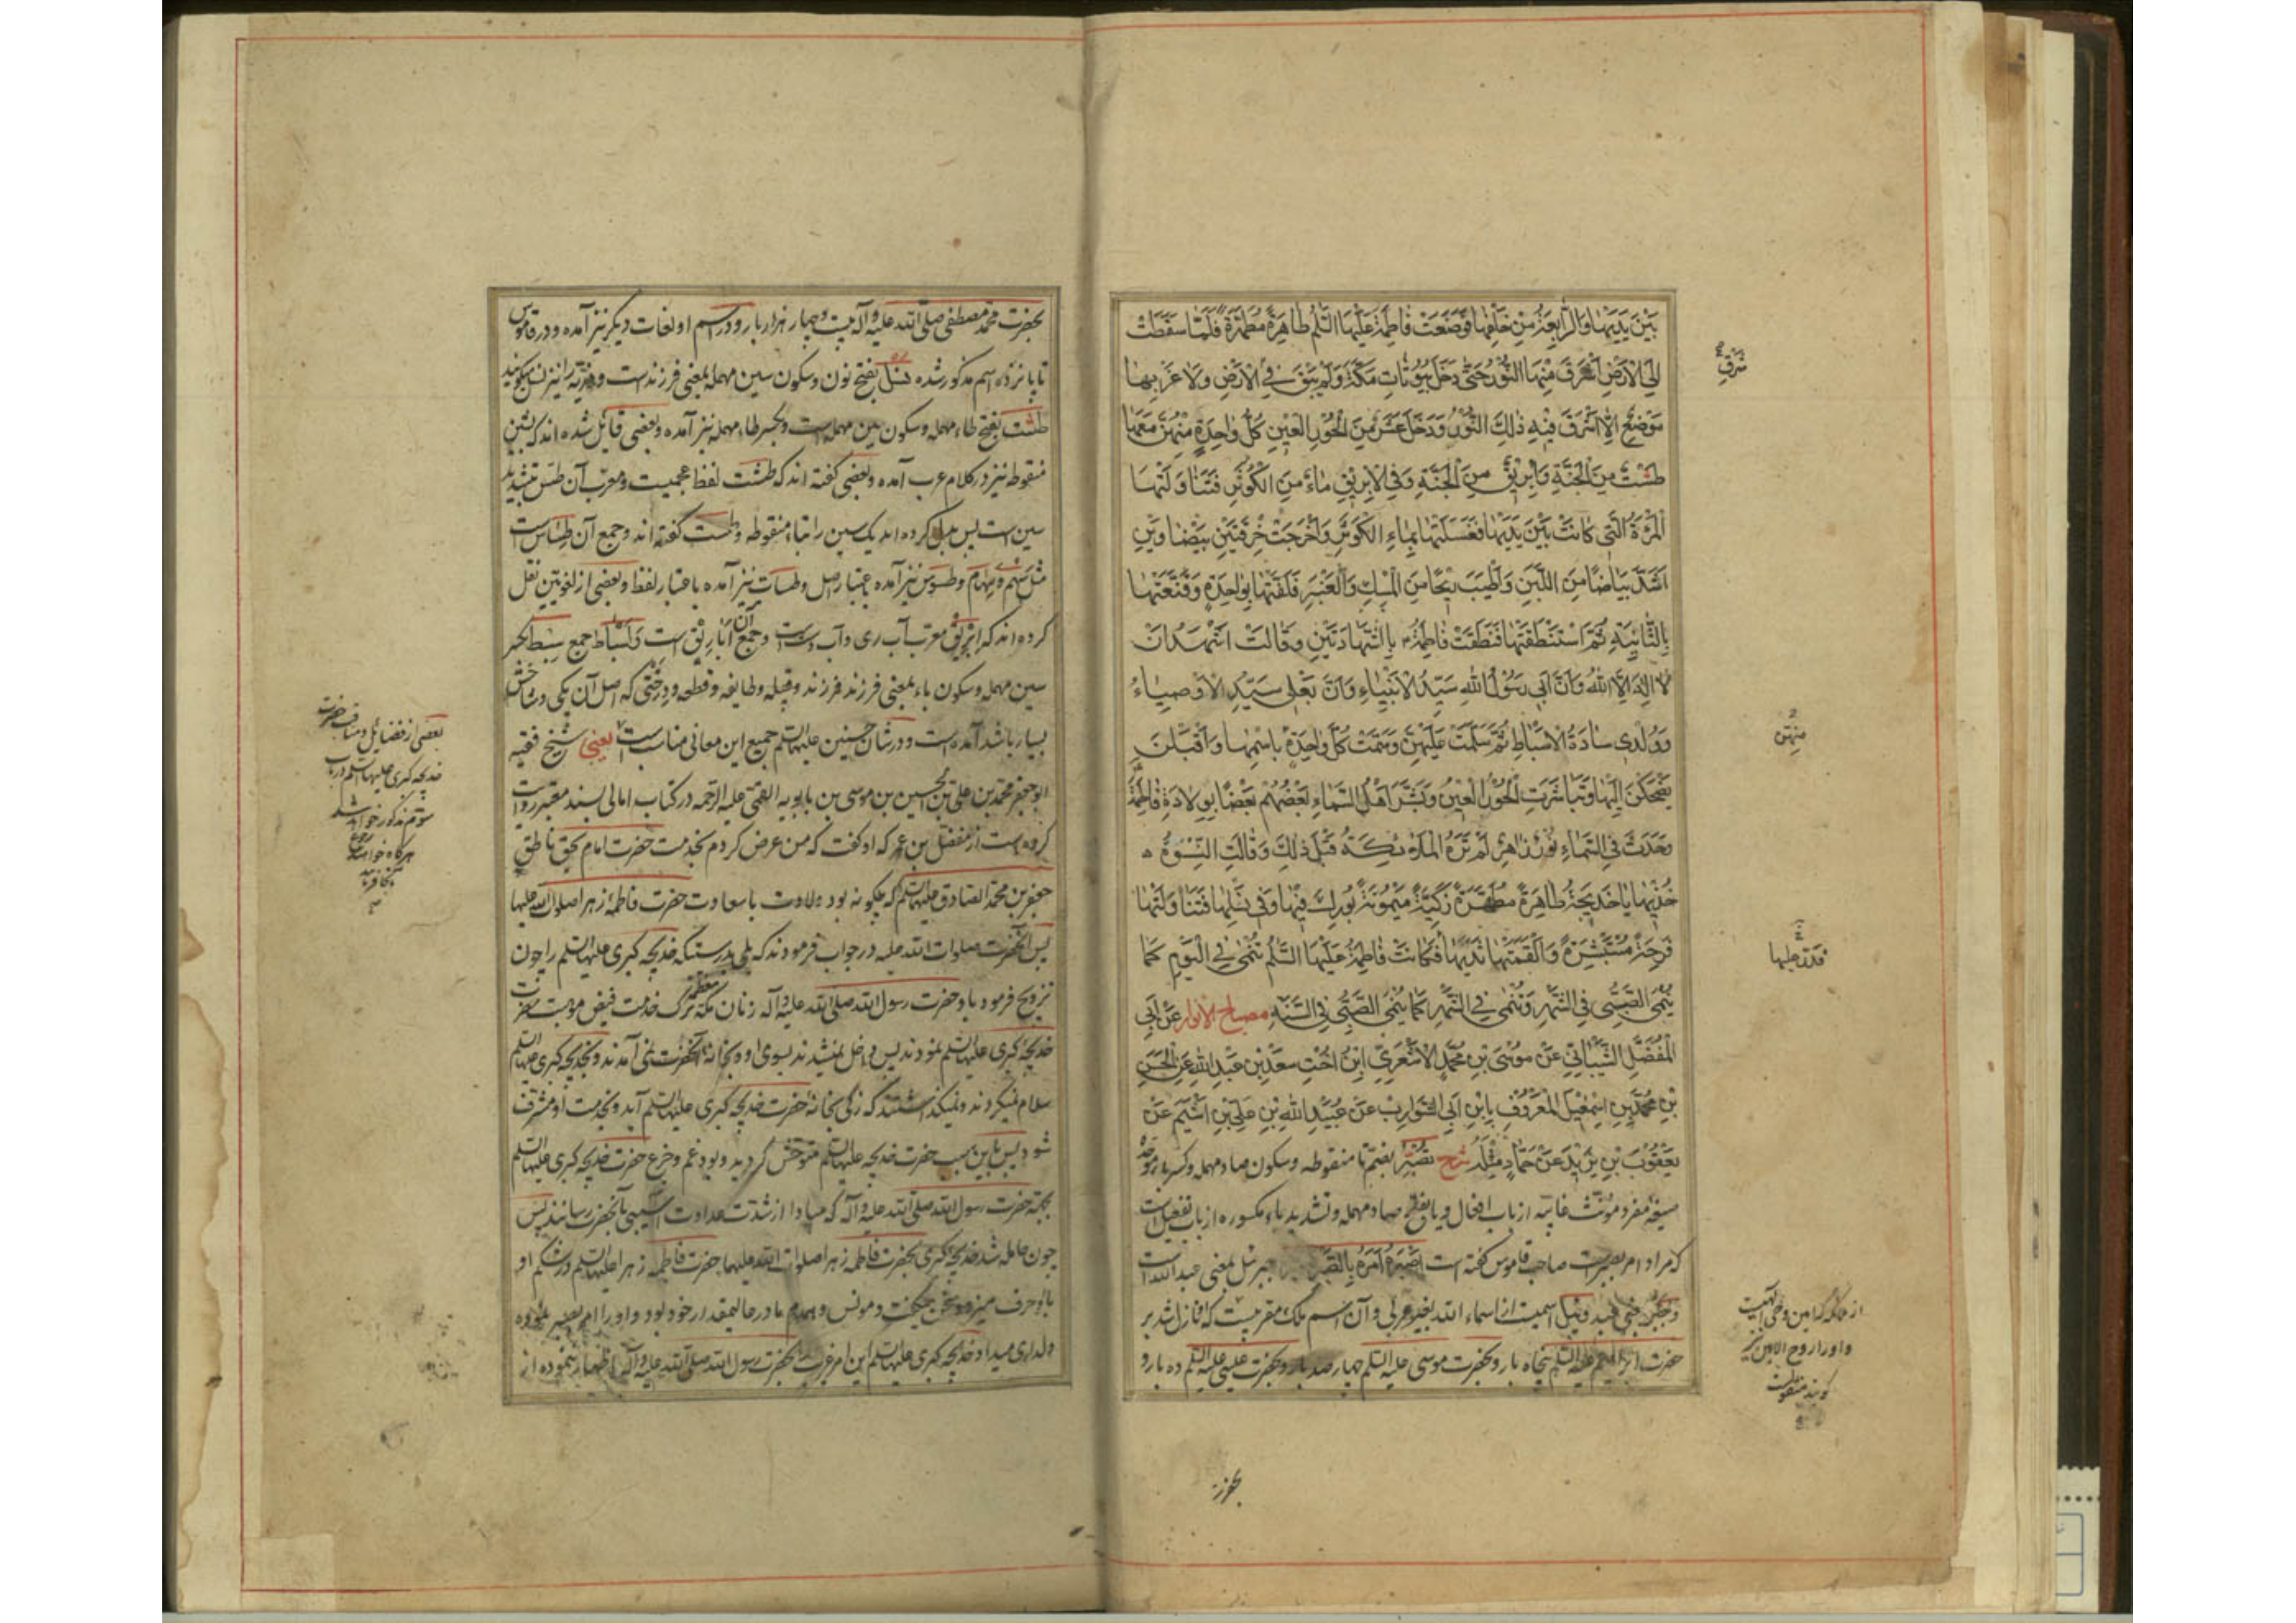 بَيْنَ يَدَيْهَا وَالرَّابِعَةُ مِنْ خَلْفِهَا فَوَضَعَتْ فَاطِمَةَ عَلَيْهَا السَّلٰمُ طَاهِرَةً مُطَهَّرَةً فَلَمَّا سَقَطَتْ
اِلَى الْاَرْضِ اَشْرَقَ مِنْهَا النُّوْرُ حَتّٰى دَخَلَ بُيُوْتَاتِ مَكَّةَ وَلَمْ يَبْقَ فِي الْاَرْضِ وَلَا غَرْبِهَا
مَوْضِعٌ اِلَّا اَشْرَقَ فِيْهِ ذٰلِكَ النُّوْرُ وَدَخَلَ عَشْرٌ مِنَ الْحُوْرِ الْعِيْنِ كُلُّ وَاحِدَةٍ مِنْهُنَّ مَعَهَا
طَسْتٌ مِنَ الْجَنَّةِ وَاِبْرِيْقٌ مِنَ الْجَنَّةِ وَفِي الْاِبْرِيْقِ مَاءٌ مِنَ الْكَوْثَرِ فَتَنَاوَلَتْهَا
الْمَرْءَةُ الَّتِي كَانَتْ بَيْنَ يَدَيْهَا فَغَسَلَتْهَا بِمَاءِ الْكَوْثَرِ وَاَخْرَجَتْ خِرْقَتَيْنِ بَيْضَاوَيْنِ
اَشَدَّ بَيَاضًا مِنَ اللَّبَنِ وَاَطْيَبَ رِيْحًا مِنَ الْمِسْكِ وَالْعَنْبَرِ فَلَفَّتْهَا بِوَاحِدَةٍ وَقَنَّعَتْهَا
بِالثَّانِيَةِ ثُمَّ اسْتَنْطَقَتْهَا فَنَطَقَتْ فَاطِمَةُ بِالشَّهَادَتَيْنِ وَقَالَتْ اَشْهَدُ اَنْ
لَا اِلٰهَ اِلَّا اللّٰهُ وَاَنَّ اَبِي رَسُوْلُ اللّٰهِ سَيِّدُ الْاَنْبِيَاءِ وَاَنَّ بَعْلِي سَيِّدُ الْاَوْصِيَاءِ
وَوُلْدِي سَادَةُ الْاَسْبَاطِ ثُمَّ سَلَّمَتْ عَلَيْهِنَّ وَسَمَّتْ كُلَّ وَاحِدَةٍ بِاسْمِهَا وَاَقْبَلْنَ
يَضْحَكْنَ اِلَيْهَا وَتَبَاشَرَتِ الْحُوْرُ الْعِيْنُ وَبَشَّرَ اَهْلُ السَّمَاءِ بَعْضُهُمْ بَعْضًا بِوِلَادَةِ فَاطِمَةَ
وَحَدَثَ فِي السَّمَاءِ نُوْرٌ زَاهِرٌ لَمْ تَرَهُ الْمَلٰئِكَةُ قَبْلَ ذٰلِكَ وَقَالَتِ النِّسْوَةُ
خُذِيْهَا يَا خَدِيْجَةُ طَاهِرَةً مُطَهَّرَةً زَكِيَّةً مَيْمُوْنَةً بُوْرِكَ فِيْهَا وَفِي نَسْلِهَا فَتَنَاوَلَتْهَا
فَرِحَةً مُسْتَبْشِرَةً وَاَلْقَمَتْهَا ثَدْيَهَا فَكَانَتْ فَاطِمَةُ عَلَيْهَا السَّلٰمُ تُنْمٰى فِي الْيَوْمِ كَمَا
يُنْمَى الصَّبِيُّ فِي الشَّهْرِ وَتُنْمٰى فِي الشَّهْرِ كَمَا يُنْمَى الصَّبِيُّ فِي السَّنَةِ مصباح الانوار عَنْ اَبِي
الْمُفَضَّلِ الشَّيْبَانِيِّ عَنْ مُوْسَى بْنِ مُحَمَّدٍ الْاَشْعَرِيِّ ابْنِ اُخْتِ سَعْدِ بْنِ عَبْدِ اللّٰهِ عَنِ الْحَسَنِ
بْنِ مُحَمَّدِ بْنِ اِسْمٰعِيْلَ الْمَعْرُوْفِ بِابْنِ اَبِي الشَّوَارِبِ عَنْ عُبَيْدِ اللّٰهِ بْنِ عَلِيِّ بْنِ اَشْيَمَ عَنْ
يَعْقُوْبَ بْنِ يَزِيْدَ عَنْ حَمَّادٍ مِثْلَهُ شرح تُصَبِّرُ بضم تا منقوطه وسكون صاد مهمله وكسر با موحده
صيغهٔ مفرد مؤنث غايبه از باب افعال ويا بفتح صاد مهمله وتشديد باء مكسوره از باب تفعيل است
كه مراد امر بصبر است صاحب قاموس گفته است اَصْبَرَهُ اَمَرَهُ بِالصَّبْرِ جبرئيل بمعنى عبد الله است
وجَبْر بمعنى عبد وئيل اسميست از اسماء الله بغير عربى وآن اسم ملك مقربيست كه نازل شد بر
حضرت ابراهيم عليه السلم پنجاه بار وبحضرت موسى عليه السلم چهار صد بار وبحضرت عيسى عليه السلم ده بار و
شَرْقِ
مِنْهُنَّ
از ملائكه كه امين وحى الهيست
واو را روح الامين نيز
گويند
بحضرت
بحضرت محمد مصطفى صلى الله عليه وآله بيست وچهار هزار بار ودر اسم او لغات ديگر نيز آمده ودر قاموس
تا پانزده اسم مذكور شده نسل بفتح نون وسكون سين مهمله بمعنى فرزند است وذريّه را نيز نسل ميگويند
طست بفتح طاء مهمله وسكون سين مهمله است وبكسر طاء مهمله نيز آمده وبعضى قايل شده اند كه بشين
منقوطه نيز در كلام عرب آمده وبعضى گفته اند كه طشت لفظ عجميست ومعرب آن طس بتشديد
سين است پس بدل كرده اند يك سين را بتاء منقوطه وطست گفته اند وجمع آن طساس است
مثل سهم وسهام وطسوس نيز آمده باعتبار اصل وطسات نيز آمده باعتبار لفظ وبعضى از لغويين نقل
كرده اند كه ابريق معرب آب رى وآب دست است وجمع آن اباريق است واسباط جمع سبط بكسر
سين مهمله وسكون باء بمعنى فرزند فرزند وقبيله وطايفه وقطعه ودرختى كه اصل آن يكى وشاخش
بسيار باشد آمده است ودر شان حسنين عليهما السلم جميع اين معانى مناسب است يعنى شيخ فقيه
ابو جعفر محمد بن على بن الحسين بن موسى بن بابويه القمى عليه الرحمه در كتاب امالى بسند معتبر روايت
كرده است از مفضل بن عمر كه او گفت كه من عرض كردم بخدمت حضرت امام بحق ناطق
جعفر بن محمد الصادق عليهما السلم كه چگونه بود ولادت با سعادت حضرت فاطمهٔ زهرا صلوات الله عليها
پس آنحضرت صلوات الله عليه در جواب فرمودند كه بلى بدرستيكه خديجه كبرى عليها السلم را چون
تزويج فرمود با او حضرت رسول الله صلى الله عليه وآله زنان مكه معظمه ترك خدمت فيض موهبت حضرت
خديجه كبرى عليها السلم نمودند پس داخل نميشدند بسوى او وبخانه آنحضرت نمى آمدند وبخديجه كبرى عليها السلم
سلام نميكردند ونميگذاشتند كه زنى بخانهٔ حضرت خديجه كبرى عليها السلم آيد وبخدمت او مشرف
شود پس باين سبب حضرت خديجه عليها السلم متوحش گرديد وبود غم وجزع حضرت خديجه كبرى عليها السلم
بجهة حضرت رسول الله صلى الله عليه وآله كه مبادا از شدت عداوت آسيبى بآنحضرت رسانند پس
چون حامله شد خديجه كبرى بحضرت فاطمه زهرا صلوات الله عليهما حضرت فاطمه زهرا عليها السلم در شكم او
با او حرف ميزد وسخن ميگفت ومونس وهمدم مادر عاليمقدار خود بود واو را امر بصبر نموده
دلدارى ميداد وخديجه كبرى عليها السلم اين امر غريب بحضرت رسول الله صلى الله عليه وآله اظهار ننموده از
بعضى از فضايل ومناقب حضرت
خديجه كبرى عليها السلم در باب
سوم مذكور خواهد شد